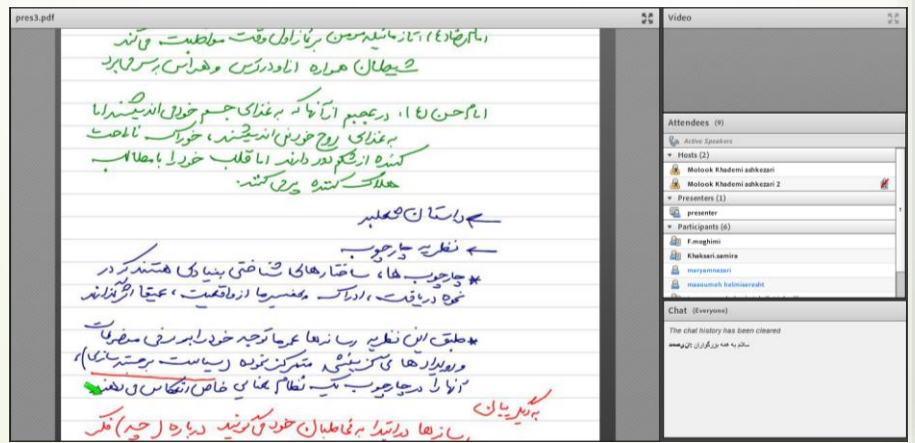 pres3.pdf
امام رضا(ع): تا زمانیکه مومن بر نماز اول وقت مواظبت می‌کند
شیطان همواره از او در ترس و هراس بسر می‌برد
امام حسن (ع): در عجبم از آنها که به غذای جسم خود می‌اندیشند اما
به غذای روح خود نمی‌اندیشند، خوراک ناراحت
کننده از شکم دور دارند اما قلب خود را با مطالب
هلاک کننده پر می‌کنند.
← داستان
← نظریه چارچوب
* چارچوب ها، ساختارهای شناختی بنیادی هستند که در
نحوه دریافت، ادراک و تفسیر ما از واقعیت، عمیقا اثرگذارند
* طبق این نظریه رسانه‌ها عموما توجه خود را بر برخی موضوعات
و رویدادهای گزینشی متمرکز نموده (سیاست برجسته‌سازی)،
آنها را در چارچوب یک نظام معنایی خاص انعکاس می‌دهند
به دیگر بیان
رسانه‌ها در ابتدا به مخاطبان خود می‌گویند درباره (چه) فکر
Video
Attendees (9)
Active Speakers
Hosts (2)
Molook Khademi ashkezari
Molook Khademi ashkezari 2
Presenters (1)
presenter
Participants (6)
F.moghimi
Khaksari.samira
maryamnazari
masoumeh
Chat (Everyone)
The chat history has been cleared
سلام به همه بزرگواران